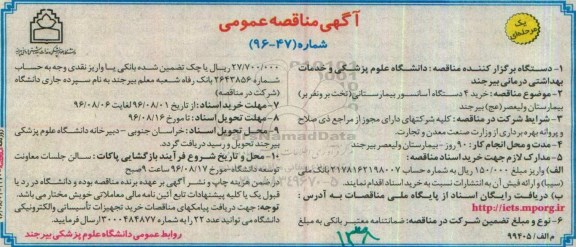 آگهی مناقصه عمومی
شماره (۴۷-۹۶)
یک مرحله‌ای
۱- دستگاه برگزار کننده مناقصه: دانشگاه علوم پزشکی و خدمات
بهداشتی درمانی بیرجند
۲- موضوع مناقصه: خرید ۲ دستگاه آسانسور بیمارستانی (تخت بر و نفربر)
بیمارستان ولیعصر (عج) بیرجند
۳- شرایط شرکت در مناقصه: کلیه شرکتهای دارای مجوز از مراجع ذی صلاح
و پروانه بهره برداری از وزارت صنعت معدن و تجارت.
۴- مدت و محل انجام کار: ۹۰ روز - بیمارستان ولیعصر بیرجند
۵- مدارک لازم جهت خرید اسناد مناقصه:
الف) واریز مبلغ ۱۵۰/۰۰۰ ریال به شماره حساب ۲۱۷۸۱۶۲۱۹۸۰۰۷ بانک ملی
(سیبا) و ارائه فیش آن به انتشارات نسبت به خرید اسناد اقدام نمایند.
ب) دریافت رایگان اسناد از پایگاه ملی مناقصات به آدرس:
http://iets.mporg.ir
۶- نوع و مبلغ تضمین شرکت در مناقصه: ضمانتنامه معتبر بانکی به مبلغ
م الف/ ۹۹۴۰۵
۲۷/۷۰۰/۰۰۰ ریال یا چک تضمین شده بانکی یا واریز نقدی وجه به حساب
شماره ۲۶۴۳۸۵۶ بانک رفاه شعبه معلم بیرجند به نام سپرده جاری دانشگاه
(شرکت در مناقصه)
۷- مهلت خرید اسناد: از تاریخ ۹۶/۰۸/۰۱ لغایت ۹۶/۰۸/۰۶
۸- مهلت تحویل اسناد: تا مورخ ۹۶/۰۸/۱۶
۹- محل تحویل اسناد: خراسان جنوبی - دبیرخانه دانشگاه علوم پزشکی
بیرجند تحویل و رسید دریافت گردد.
۱۰- محل و تاریخ شروع فرآیند بازگشایی پاکات: سالن جلسات معاونت
توسعه دانشگاه مورخ ۹۶/۰۸/۱۷ ساعت ۹ صبح
در ضمن هزینه چاپ و نشر آگهی بر عهده برنده مناقصه بوده و دانشگاه در رد یا
قبول یک یا کلیه پیشنهادات تابع آئین نامه مالی و معاملاتی خویش مختار می باشد
توجه: جهت دریافت پیامکهای مناقصات خرید تجهیزات تأسیساتی و الکترونیکی
دانشگاه می توانید عدد ۲۲ را به شماره ۳۰۰۰۴۸۴۸۷۷ ارسال فرمایید.
روابط عمومی دانشگاه علوم پزشکی بیرجند